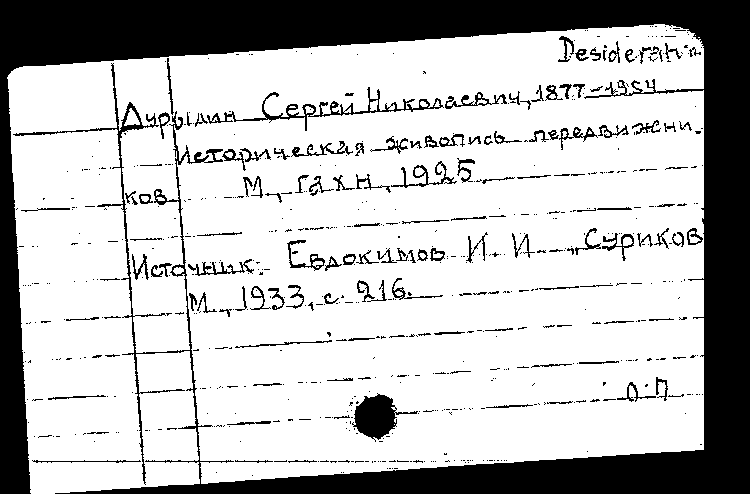 Desiderata
Дурылин Сергей Николаевич, 1877-1954
Историческая живопись передвижни-
ков. М., ГАХН, 1925.
Источник: Евдокимов И. И. „Суриков"
М., 1933, с. 216.
О.П